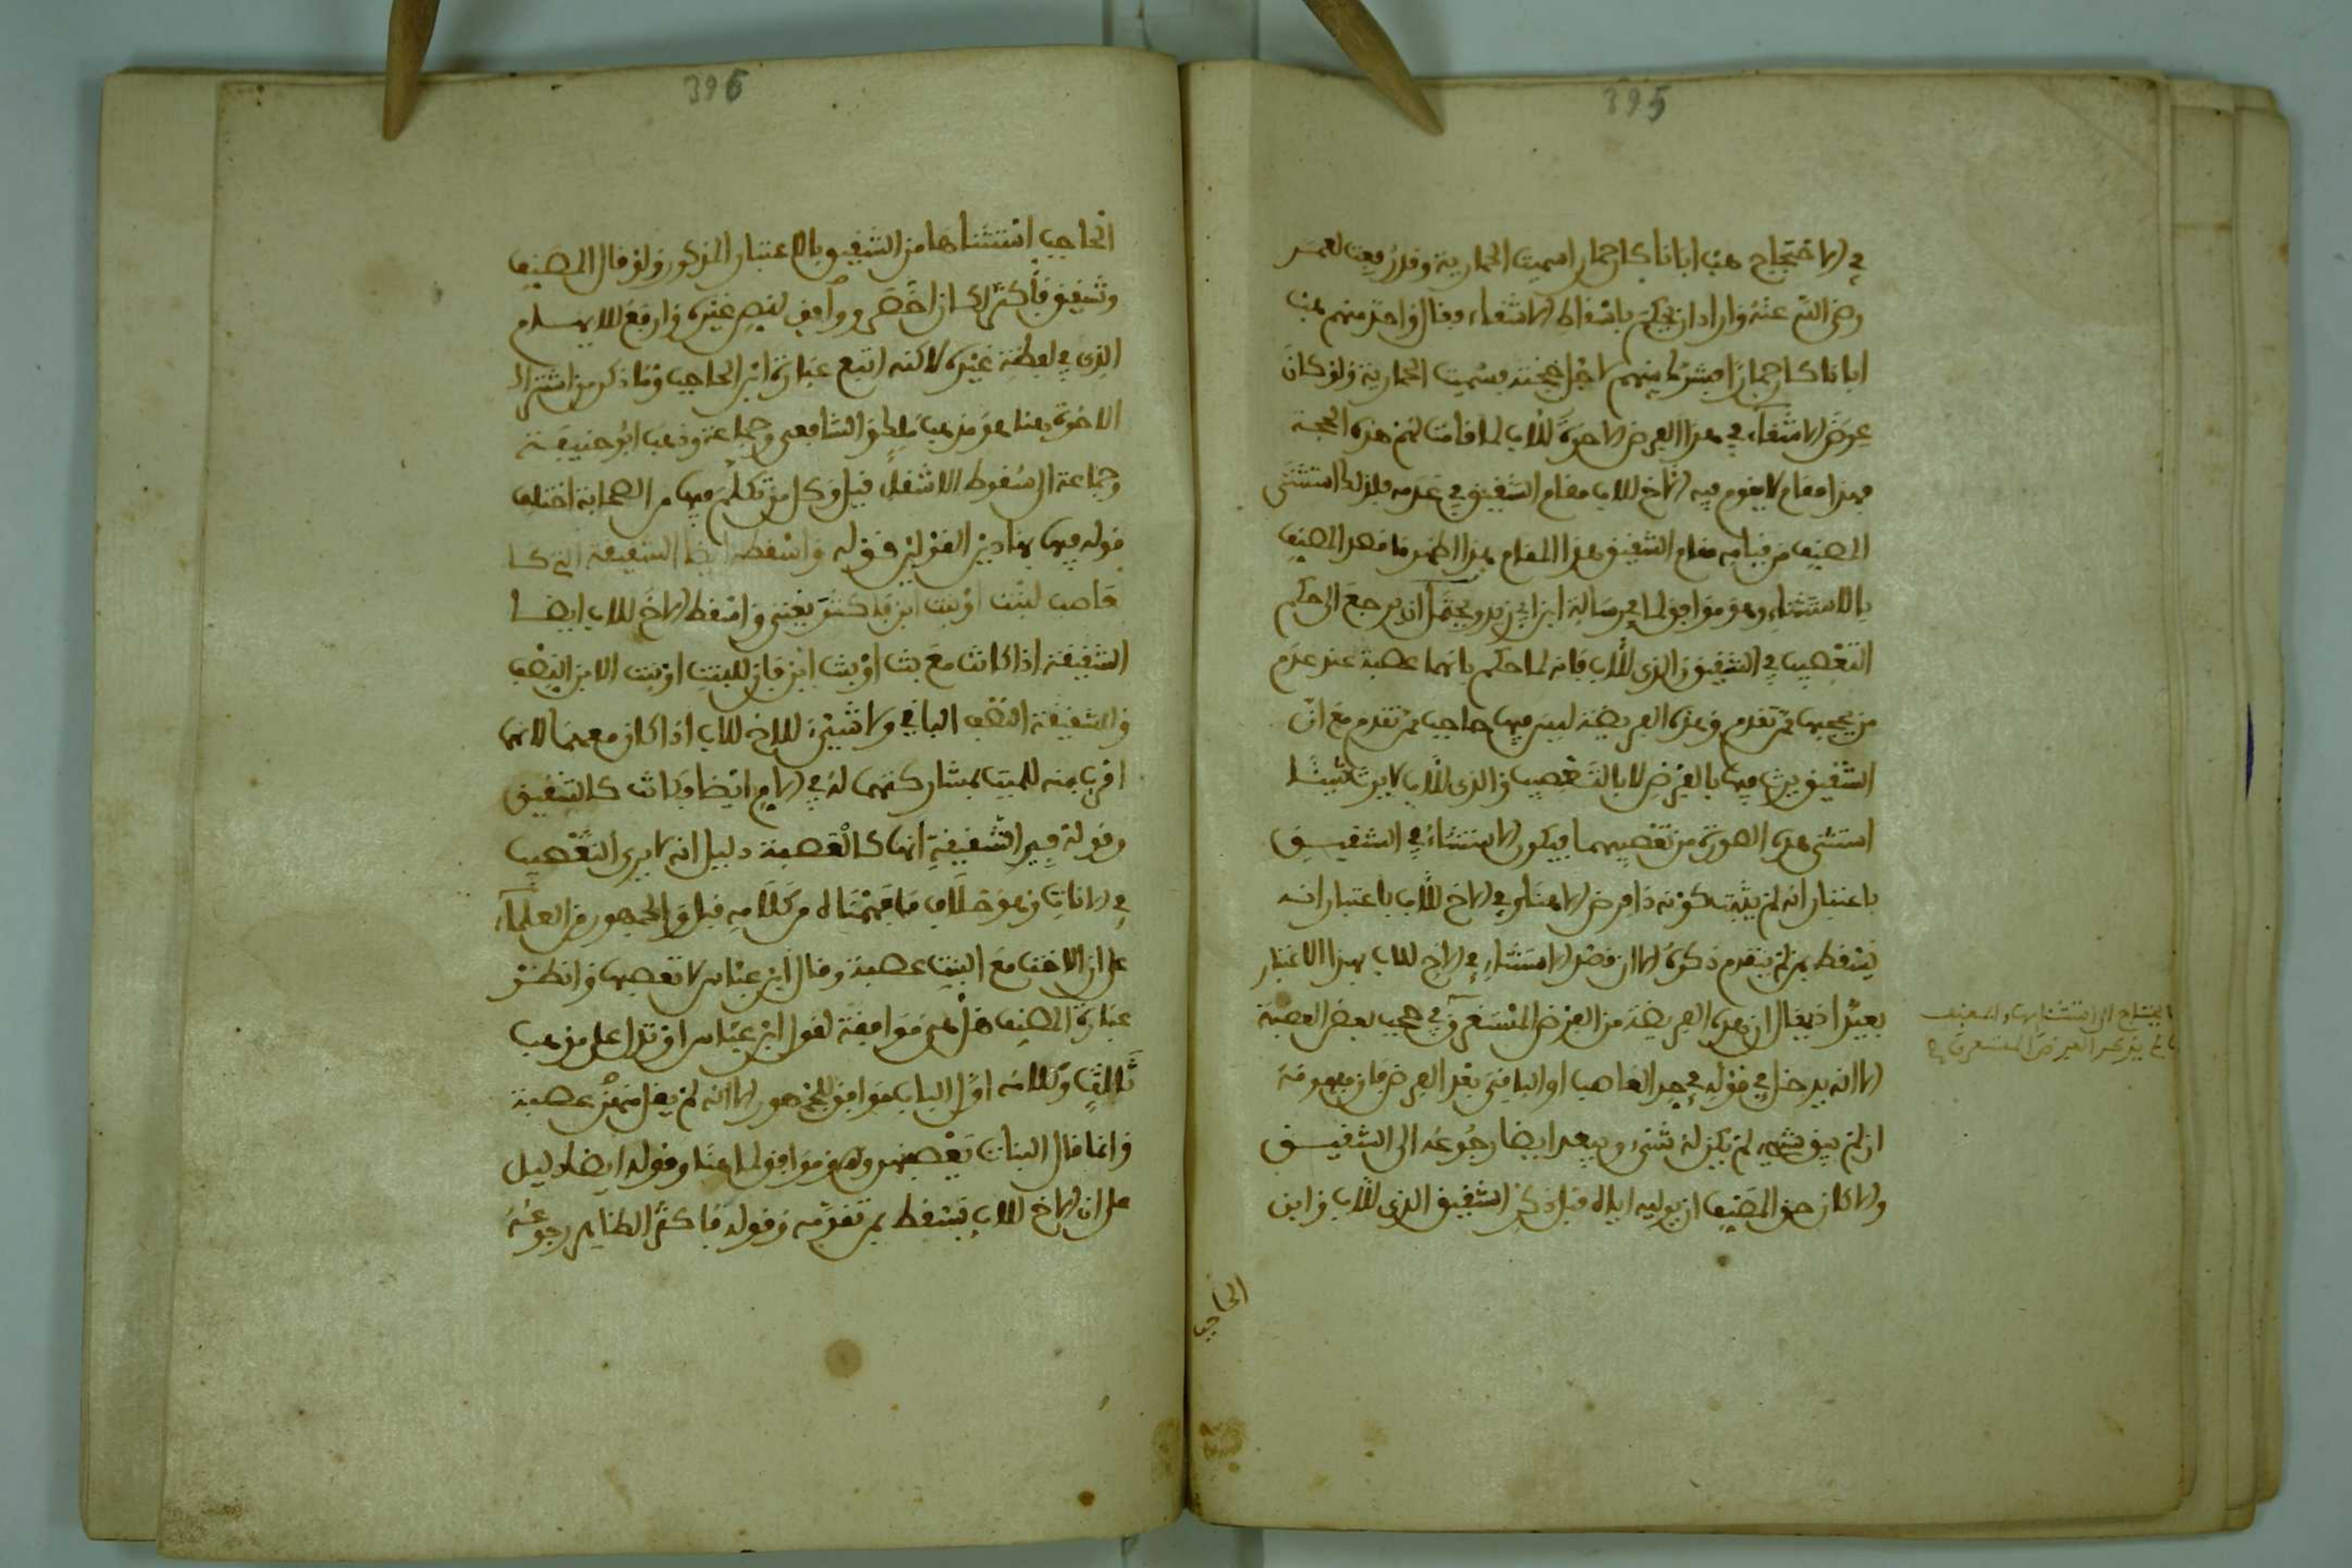 395
في الاحتجاج هب ابانا كان حمارا سميت الحمارية وقد رفعت لعمر
رضي الله عنه واراد ان يحكم باسقاط الاشقاء فقال واحد منهم هب
ابانا كان حمارا فشرك بينهم لاجل حجته فسميت الحمارية ولو كان
عوض الاشقاء في هذا الفرض الاخوة للاب لما قامت لهم هذه الحجة
فهذا مقام لا يقوم فيه الاخ للاب مقام الشقيق في عدمه فلذلك استثنى
المصنف من قيامه مقام الشقيق هذا المقام هذا اظهر ما قصد المصنف
بالاستثناء وهو موافق لما في رسالة ابن ابي زيد ويحتمل ان يرجع الى حكم
التعصيب في الشقيق والذي للاب فانه لما حكم بانهما عصبة عند عدم
من يحجبهما ممن تقدم وهذه الفريضة ليس فيها حاجب ممن تقدم مع ان
الشقيق يرث فيها بالفرض لا بالتعصيب والذي للاب لا يرث شيئا
استثنى هذه الصورة من تعصيبهما فيكون الاستثناء في الشقيق
باعتبار انه لم يثبت كونه ذا فرض الا هنا وفي الاخ للاب باعتبار انه
يسقط بمن لم يتقدم ذكره الا ان قصد الاستثناء في الاخ للاب بهذا الاعتبار
بعيد اذ يقال ان هذه الفريضة من الفرض المستغرق في حجب بعض العصبة
الا انه يدخل في قوله في حد العاصب او الباقي بعد الفرض فان مفهومه
ان لم يبق شيء لم يكن له شيء ويبعد ايضا رجوعه الى الشقيق
والا كان حق المصنف ان يوليه اياه قبل ذكر الشقيق الذي للاب وابن
الحاجب
396
الحاجب استثناها من الشقيق بالاعتبار المذكور ولو قال المصنف
وشقيق فاكثر لكان اخصر ووافق لنص غيره وارفع للايهام
الذي في لفظة غيره لاكنه اتبع عبارة ابن الحاجب وما ذكر من اشتراك
الاخوة هنا هو مذهب ملك والشافعي وجماعة وذهب ابو حنيفة
وجماعة الى سقوط الاشقاء قيل وكل من تكلم فيها من الصحابة اختلف
قوله فيها بهاذين القولين قوله واسقطه ايضا الشقيقة التي كا
لعاصب لبنت او بنت ابن فاكثر يعني واسقط الاخ للاب ايضا
الشقيقة اذا كانت مع بنت او بنت ابن فان للبنت او بنت الابن النصف
وللشقيقة النصف الباقي ولا شيء للاخ للاب اذا كان معهما لانها
اقرب منه للميت لمشاركتها له في الام ايضا وكانت كالشقيق
وقوله في الشقيقة انها كالعصبة دليل انه لا يرى التعصيب
في الاناث وهو خلاف ما فهمناه من كلامه قبل والجمهور من العلماء
على ان الاخت مع البنت عصبة وقال ابن عباس لا تعصبها وانظر
عبارة المصنف هل هي موافقة لقول ابن عباس او تدل على مذهب
ثالث وكلامه اول الباب موافق للجمهور الا انه لم يقل فيهن عصبة
وانما قال البنات تعصبهن وهو موافق لما هنا وقوله ايضا دليل
على ان الاخ للاب يسقط بمن تقدمه وقوله فاكثر الظاهر رجوعه